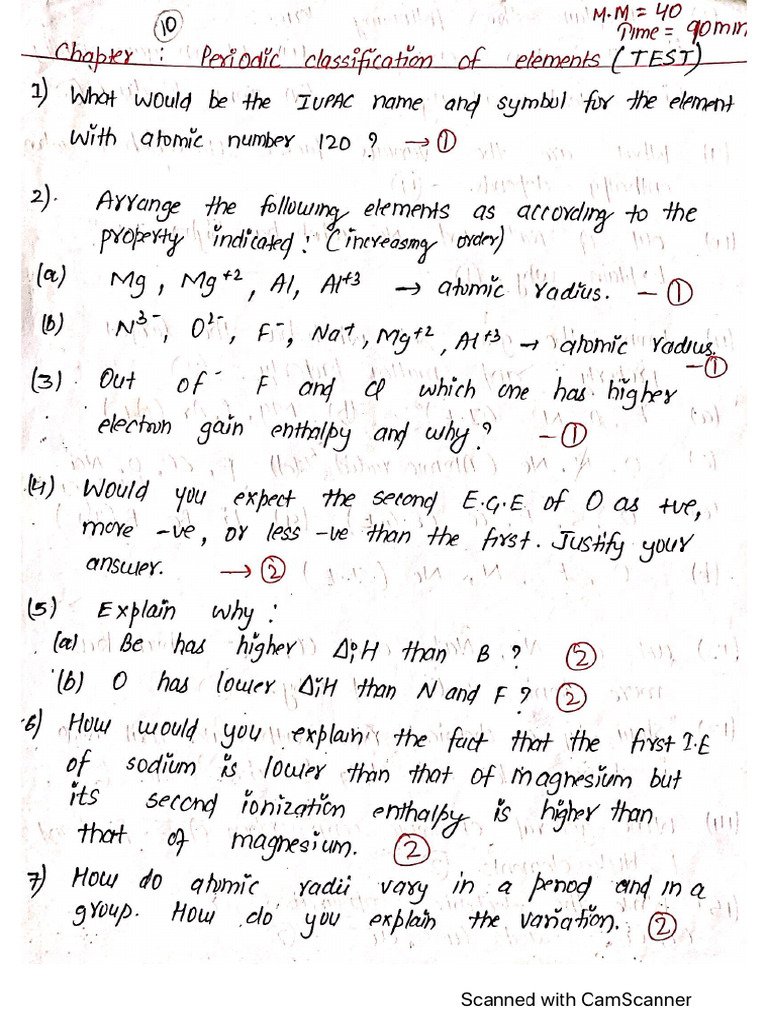 10
M.M = 40
Time = 90 min
Chapter : Periodic classification of elements (TEST)
1) What would be the IUPAC name and symbol for the element
with atomic number 120 ? → 1
2). Arrange the following elements as according to the
property indicated : (increasing order)
(a) Mg, Mg+2, Al, Al+3 → atomic radius. – 1
(b) N3-, O2-, F-, Na+, Mg+2, Al+3 → atomic radius.
– 1
(3) Out of F and Cl which one has higher
electron gain enthalpy and why? – 1
(4) Would you expect the second E.G.E of O as +ve,
more -ve, or less -ve than the first. Justify your
answer. → 2
(5) Explain why :
(a) Be has higher ΔiH than B ? 2
(b) O has lower ΔiH than N and F ? 2
6) How would you explain the fact that the first I.E
of sodium is lower than that of magnesium but
its second ionization enthalpy is higher than
that of magnesium. 2
7) How do atomic radii vary in a period and in a
group. How do you explain the variation. 2
Scanned with CamScanner